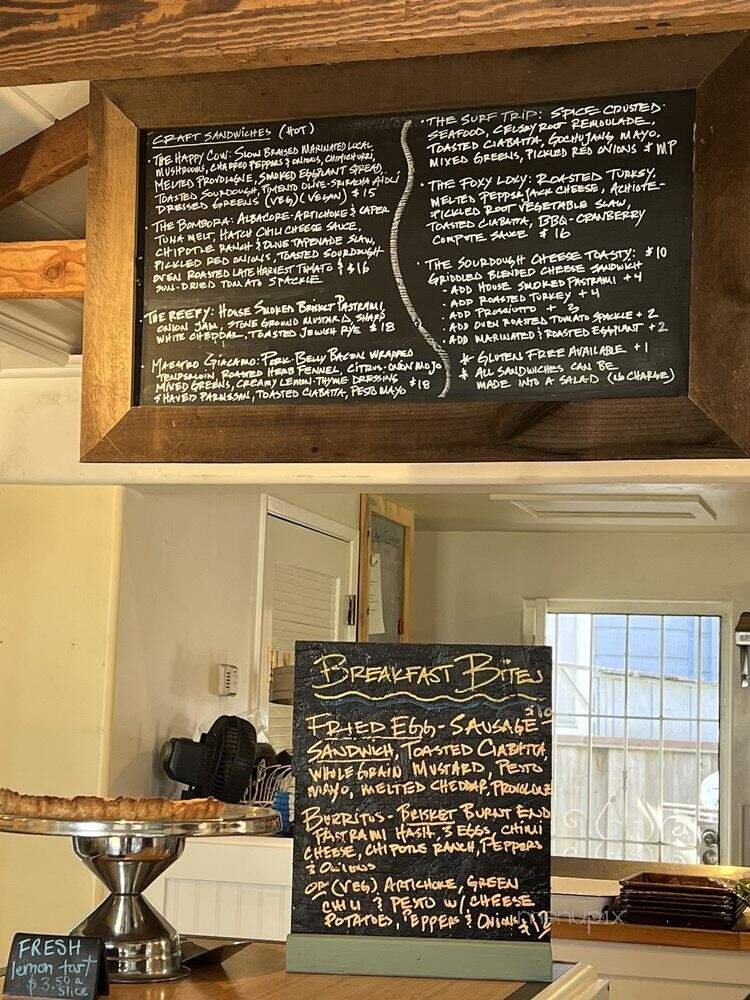 CRAFT SANDWICHES (HOT)
· THE HAPPY COW: SLOW BRAISED MARINATED LOCAL
MUSHROOMS, CHARRED PEPPERS & ONIONS, CHIMICHURRI,
MELTED PROVOLONE, SMOKED EGGPLANT SPREAD,
TOASTED SOURDOUGH, PIMENTO OLIVE-SRIRACHA AIOLI
DRESSED GREENS (VEG) (VEGAN) $15
· THE BOMBORA: ALBACORE-ARTICHOKE & CAPER
TUNA MELT, HATCH CHILI CHEESE SAUCE,
CHIPOTLE RANCH & OLIVE TAPENADE SLAW,
PICKLED RED ONIONS, TOASTED SOURDOUGH
OVEN ROASTED LATE HARVEST TOMATO & $16
SUN-DRIED TOMATO SPACKLE
· THE REEFY: HOUSE SMOKED BRISKET PASTRAMI,
ONION JAM, STONE GROUND MUSTARD, SHARP
WHITE CHEDDAR, TOASTED JEWISH RYE $18
· MAESTRO GIACAMO: PORK BELLY BACON WRAPPED
TENDERLOIN ROASTED HERB FENNEL, CITRUS-ONION MOJO
MIXED GREENS, CREAMY LEMON-THYME DRESSING
SHAVED PARMESAN, TOASTED CIABATTA, PESTO MAYO $18
· THE SURF TRIP: SPICE CRUSTED
SEAFOOD, CELERY ROOT REMOULADE,
TOASTED CIABATTA, GOCHUJANG MAYO,
MIXED GREENS, PICKLED RED ONIONS $ MP
· THE FOXY LOXY: ROASTED TURKEY,
MELTED PEPPER JACK CHEESE, ACHIOTE-
PICKLED ROOT VEGETABLE SLAW,
TOASTED CIABATTA, BBQ-CRANBERRY
COMPOTE SAUCE $16
· THE SOURDOUGH CHEESE TOASTY: $10
GRIDDLED BLENDED CHEESE SANDWICH
- ADD HOUSE SMOKED PASTRAMI +4
- ADD ROASTED TURKEY +4
- ADD PROSCIUTTO + 3
- ADD OVEN ROASTED TOMATO SPACKLE + 2
- ADD MARINATED & ROASTED EGGPLANT + 2
* GLUTEN FREE AVAILABLE +1
* ALL SANDWICHES CAN BE
MADE INTO A SALAD (NO CHARGE)
BREAKFAST BITES
$10
FRIED EGG-SAUSAGE
SANDWICH, TOASTED CIABATTA
WHOLE GRAIN MUSTARD, PESTO
MAYO, MELTED CHEDDAR, PROVOLONE
BURRITOS - BRISKET BURNT END
PASTRAMI HASH, 3 EGGS, CHILI
CHEESE, CHIPOTLE RANCH, PEPPERS
& ONIONS
OR (VEG) ARTICHOKE, GREEN
CHILI & PESTO W/ CHEESE
POTATOES, PEPPERS & ONIONS
FRESH
lemon tart
$3.50 a
slice
menupix